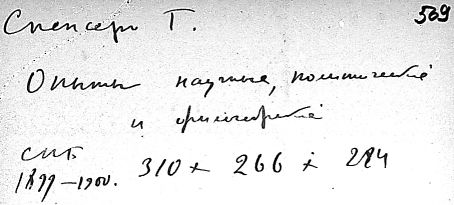 509
Спенсер Г.
Опыты научные, политические
и философские
СПБ
1899–1900. 310 + 266 + 284